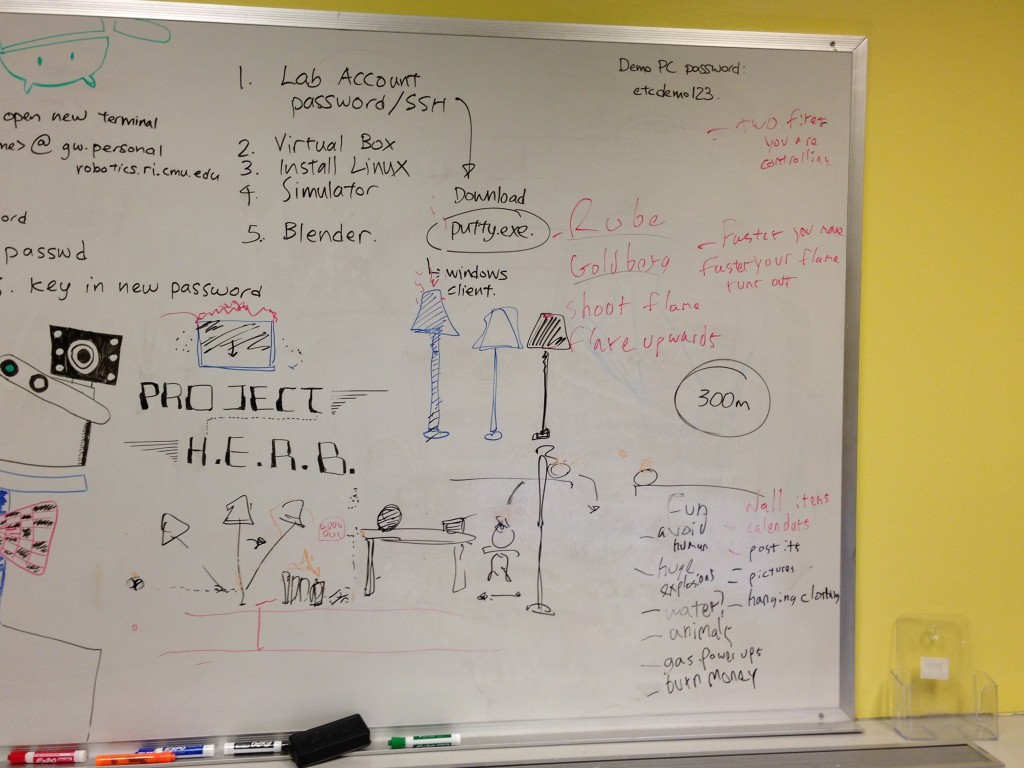 open new terminal
me> @ gw.personal
robotics.ri.cmu.edu
ord
passwd
5. key in new password
1. Lab Account
password/SSH
2. Virtual Box
3. Install Linux
4. Simulator
5. Blender.
Download
putty.exe.
windows
client.
Demo PC password:
etcdemo123.
- two fires
you are
controlling
Rube
Goldberg
shoot flame
flare upwards
- Faster you move
faster your flame
runs out
300m
PROJECT
H.E.R.B.
Fun
- avoid
human
- huge
explosions
- water?
- animals
- gas power ups
- burn money
Wall items
- calendars
- post its
- pictures
- hanging clothing